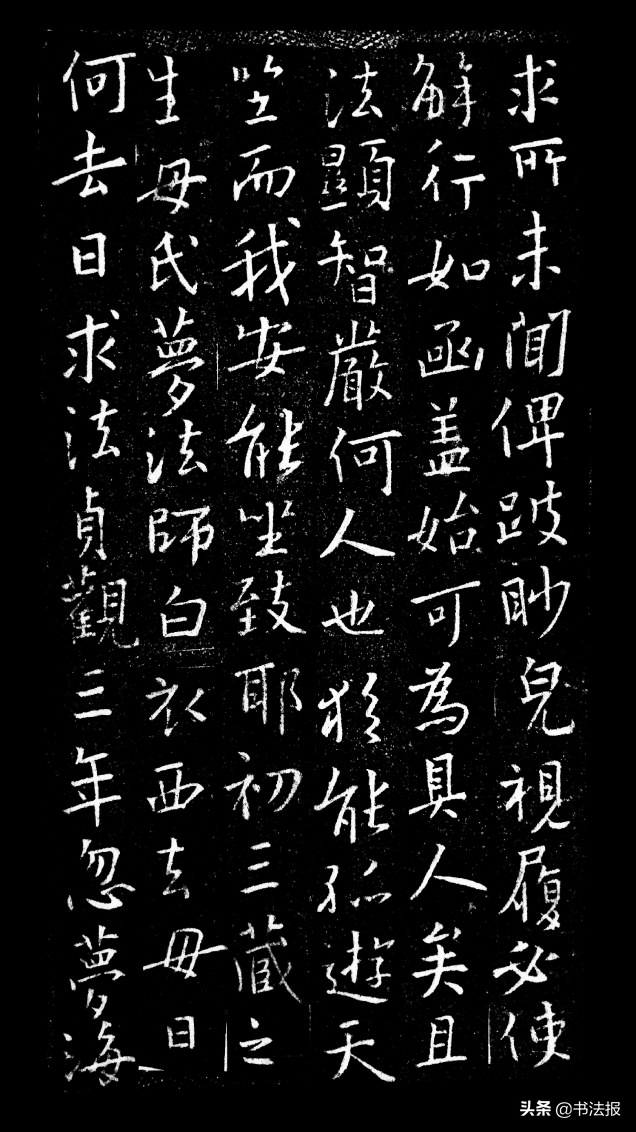 求所未聞俾跛眇皃視履必使
解行如函盖始可為具人矣且
法顯智嚴何人也猶能孤遊天
竺而我安能坐致耶初三藏之
生母氏夢法師白衣西去母曰
何去曰求法貞觀三年忽夢海
头条 @书法报